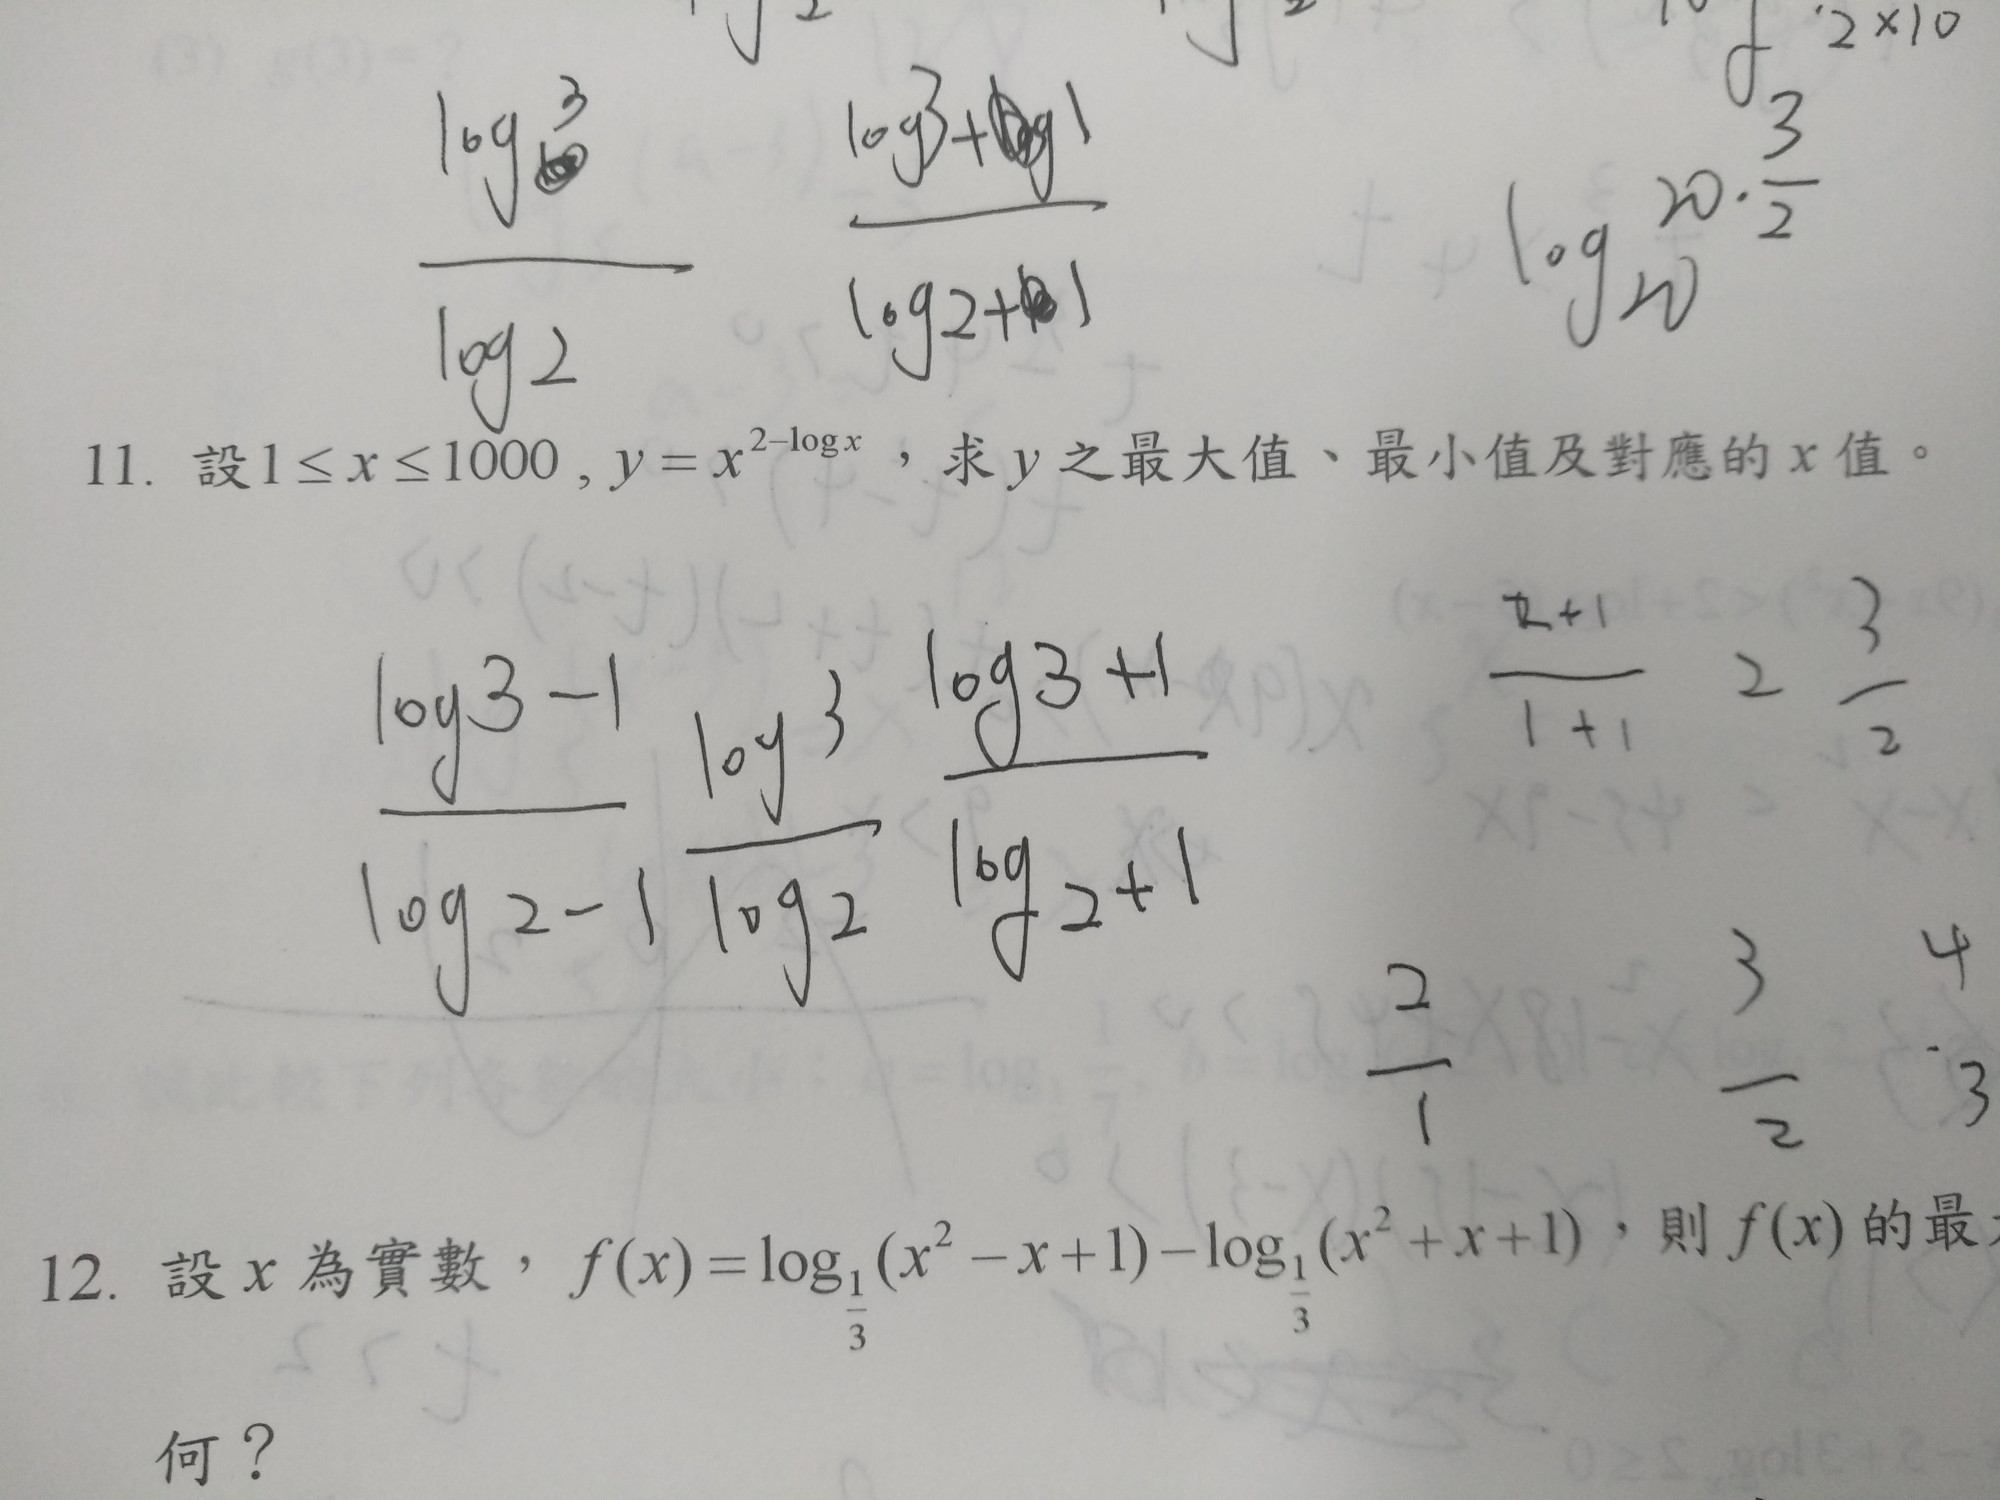 2×10
log 3 / log 2
log3+log1 / log2+1
log_20 20·3/2
11. 設1≤x≤1000 , y=x^{2−log x},求 y 之最大值、最小值及對應的 x 值。
log3−1 / log2−1
log3 / log2
log3+1 / log2+1
2+1 / 1+1
2
3/2
2/1
3/2
4
3
12. 設 x 為實數, f(x)=log_{1/3}(x²−x+1)−log_{1/3}(x²+x+1),則 f(x) 的最
何?